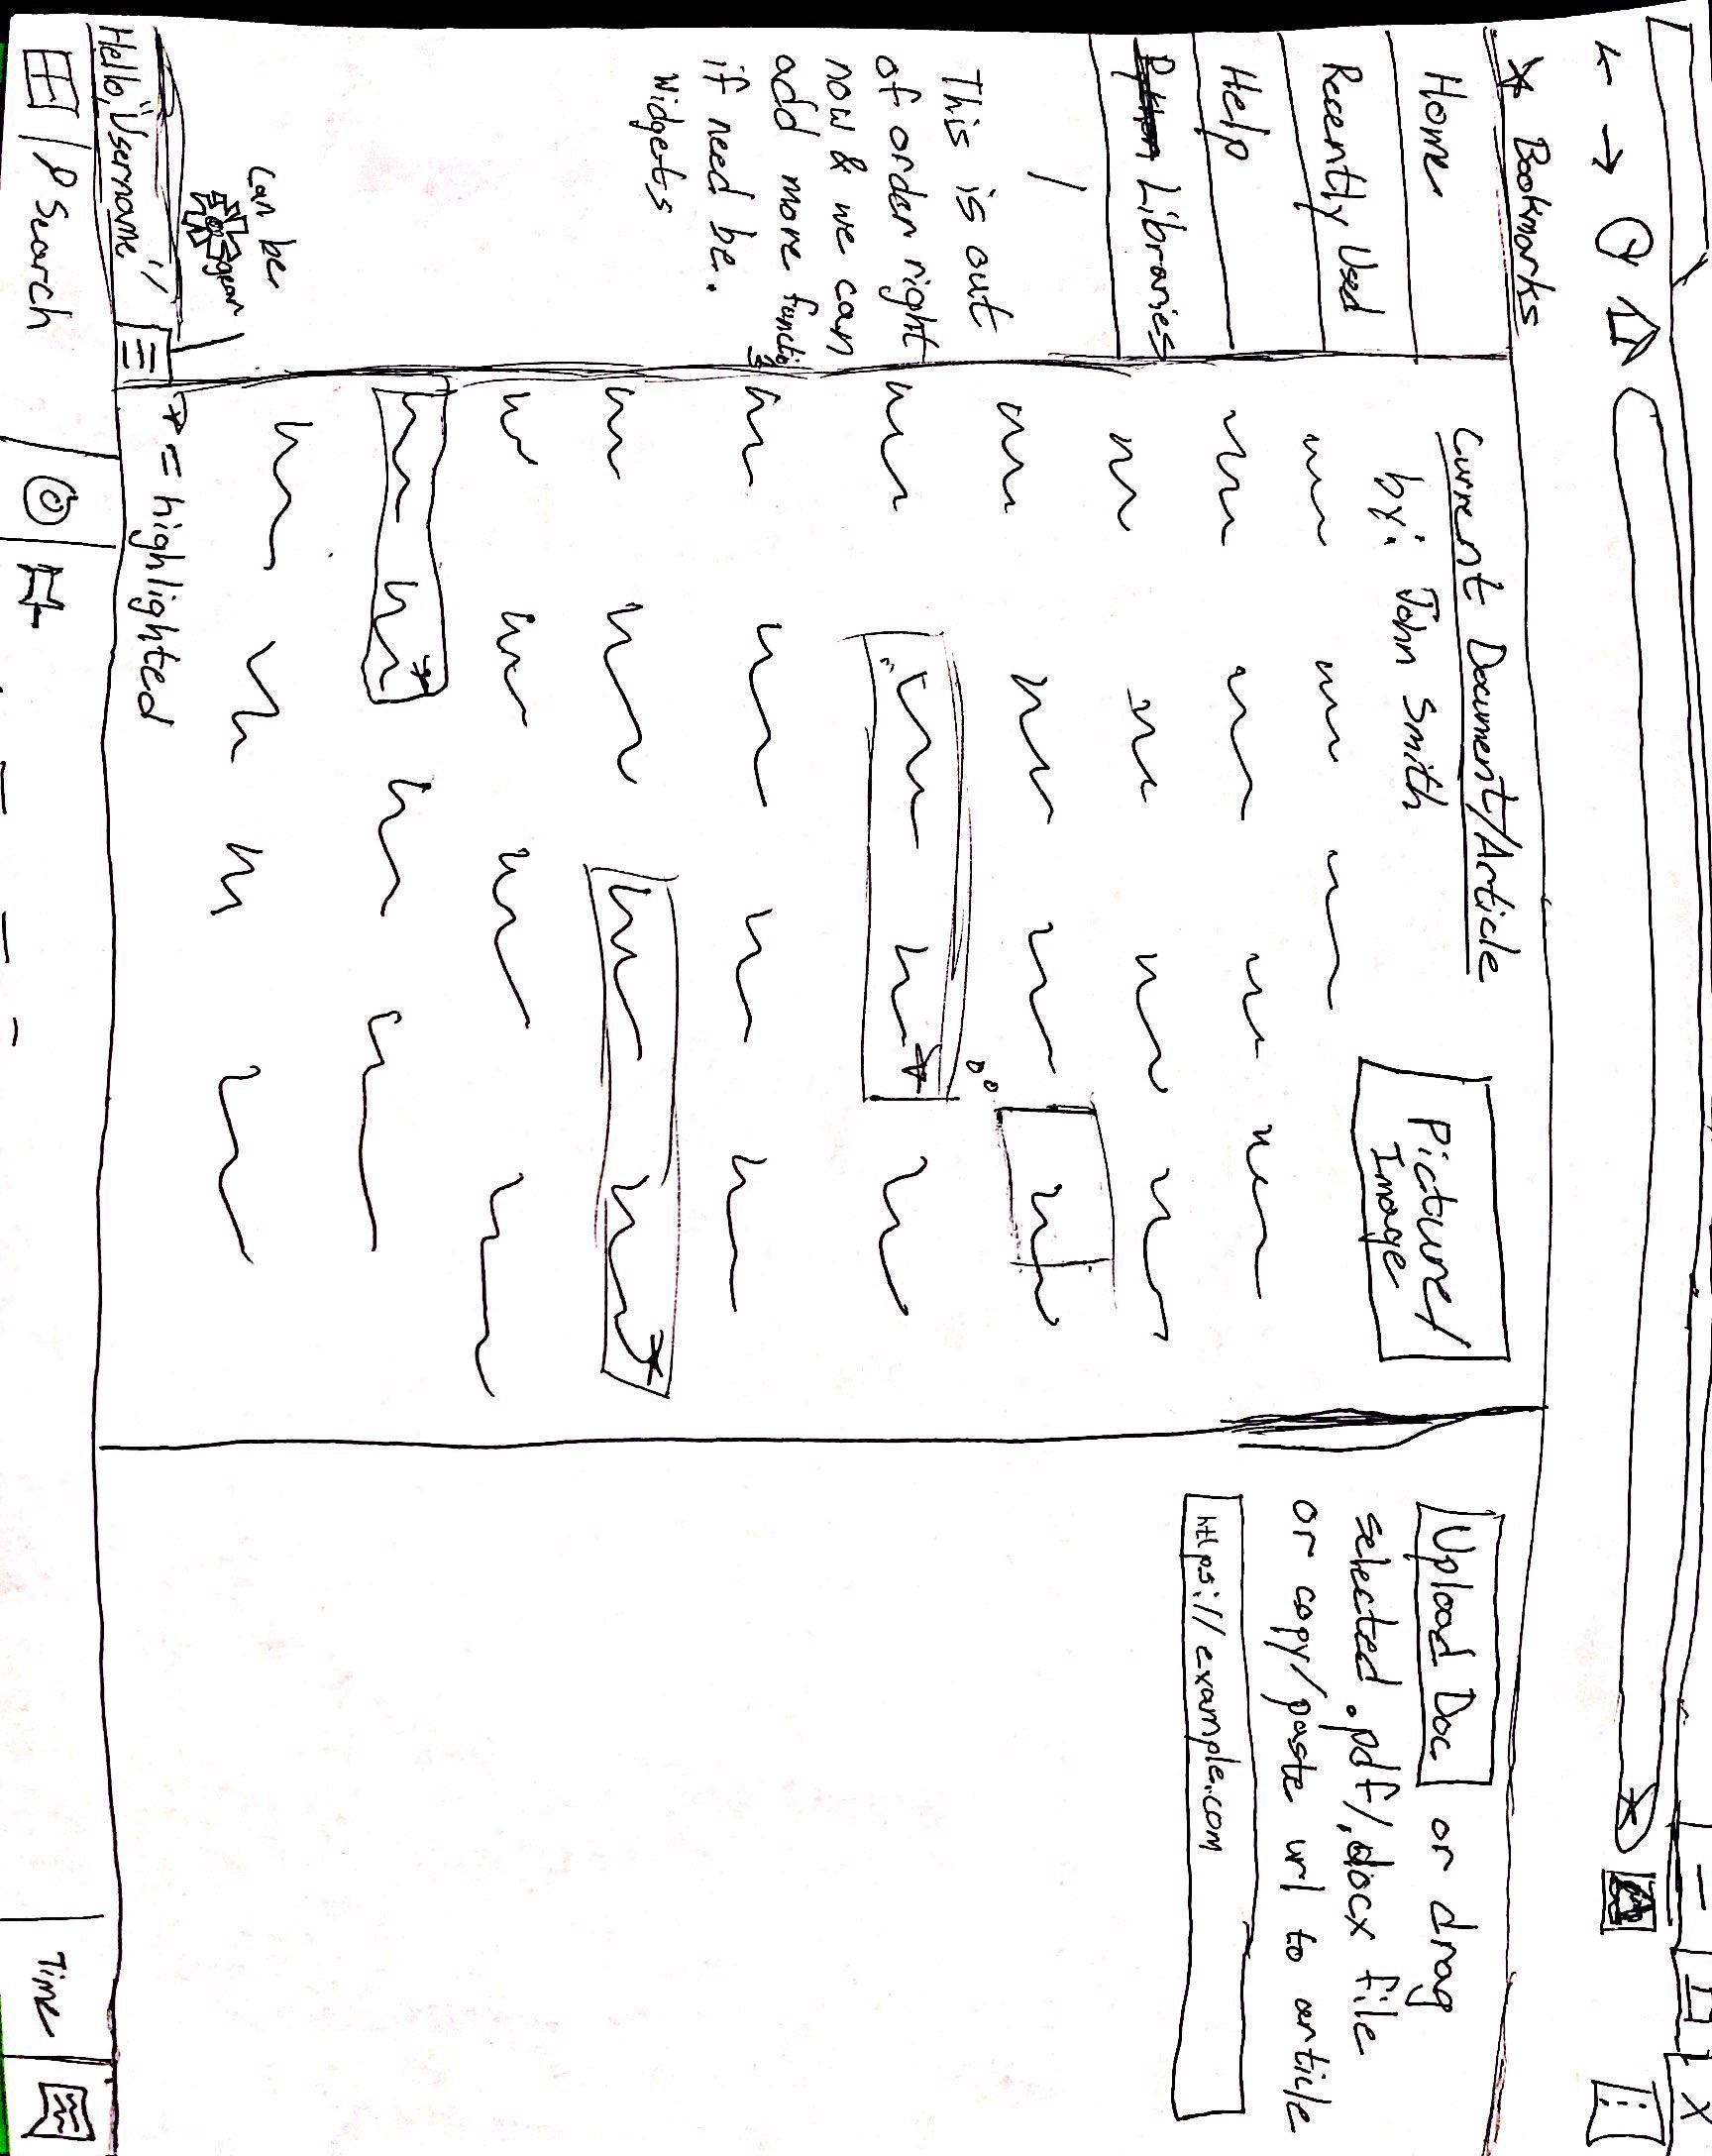 Bookmarks
Home
Recently Used
Help
Libraries
This is out
of order right
now & we can
add more functions
if need be.
widgets
can be
gear
Hello, "Username"
Search
Current Document/Article
by: John Smith
Picture/
Image
* = highlighted
Upload Doc or drag
selected .pdf/.docx file
or copy/paste url to article
https://example.com
Time
X